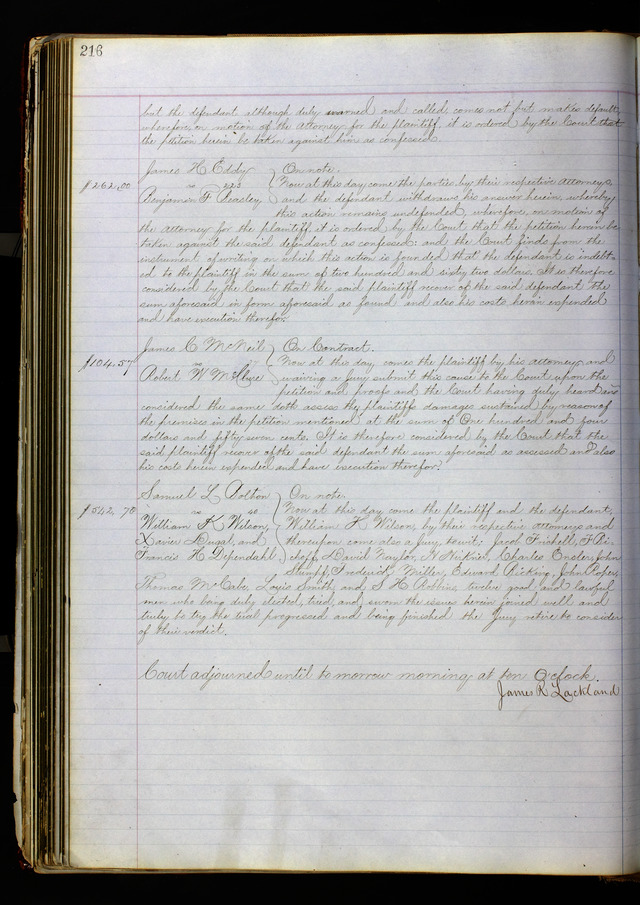 216
but the defendant although duly warned and called comes not but makes default,
wherefore, on motion of the Attorney for the plaintiff it is ordered by the Court that
the petition herein be taken against him as confessed
James H Eddy } On note.
$262.00 vs 223 } Now at this day come the parties by their respective Attorneys,
Benjamin F Beasley } and the defendant withdraws his answer herein whereby
this action remains undefended, wherefore, on motion of
the Attorney for the plaintiff it is ordered by the Court that the petition herein be
taken against the said defendant as confessed: and the Court finds from the
instrument of writing on which this action is founded that the defendant is indebt-
ed to the plaintiff in the sum of two hundred and sixty two dollars. It is therefore
considered by the Court that the said plaintiff recover of the said defendant the
sum aforesaid in form aforesaid as found and also his costs herein expended
and have execution therefor.
James C McNeil } On Contract.
$104.57 vs } Now at this day comes the plaintiff by his attorney and
Robert W McClure } waiving a Jury submit this cause to the Court upon the
petition and proofs and the Court having duly heard and
considered the same doth assess the plaintiffs damages sustained by reason of
the premises in the petition mentioned at the sum of One hundred and four
dollars and fifty seven cents. It is therefore considered by the Court that the
said plaintiff recover of the said defendant the sum aforesaid as assessed and also
his costs herein expended and have execution therefor.
Samuel L Bolton } On note.
$542.78 vs 40 } Now at this day come the plaintiff and the defendant,
William H Wilson, } William H Wilson, by their respective Attorneys and
Xavier Dugat, and } thereupon come also a Jury, towit; Jacob Frishell,
Francis H Dependahl } David Naylor, Charles Ensler, John
Stumpf, Frederick Miller, Edward Ricking, John Roper,
Thomas McCabe, Louis Smith, and S H Robbins, twelve good and lawful
men who being duly elected, tried, and sworn the issues herein joined well and
truly to try the trial progressed and being finished the Jury retire to consider
of their verdict.
Court adjourned until tomorrow morning at ten O'clock.
James R Lackland